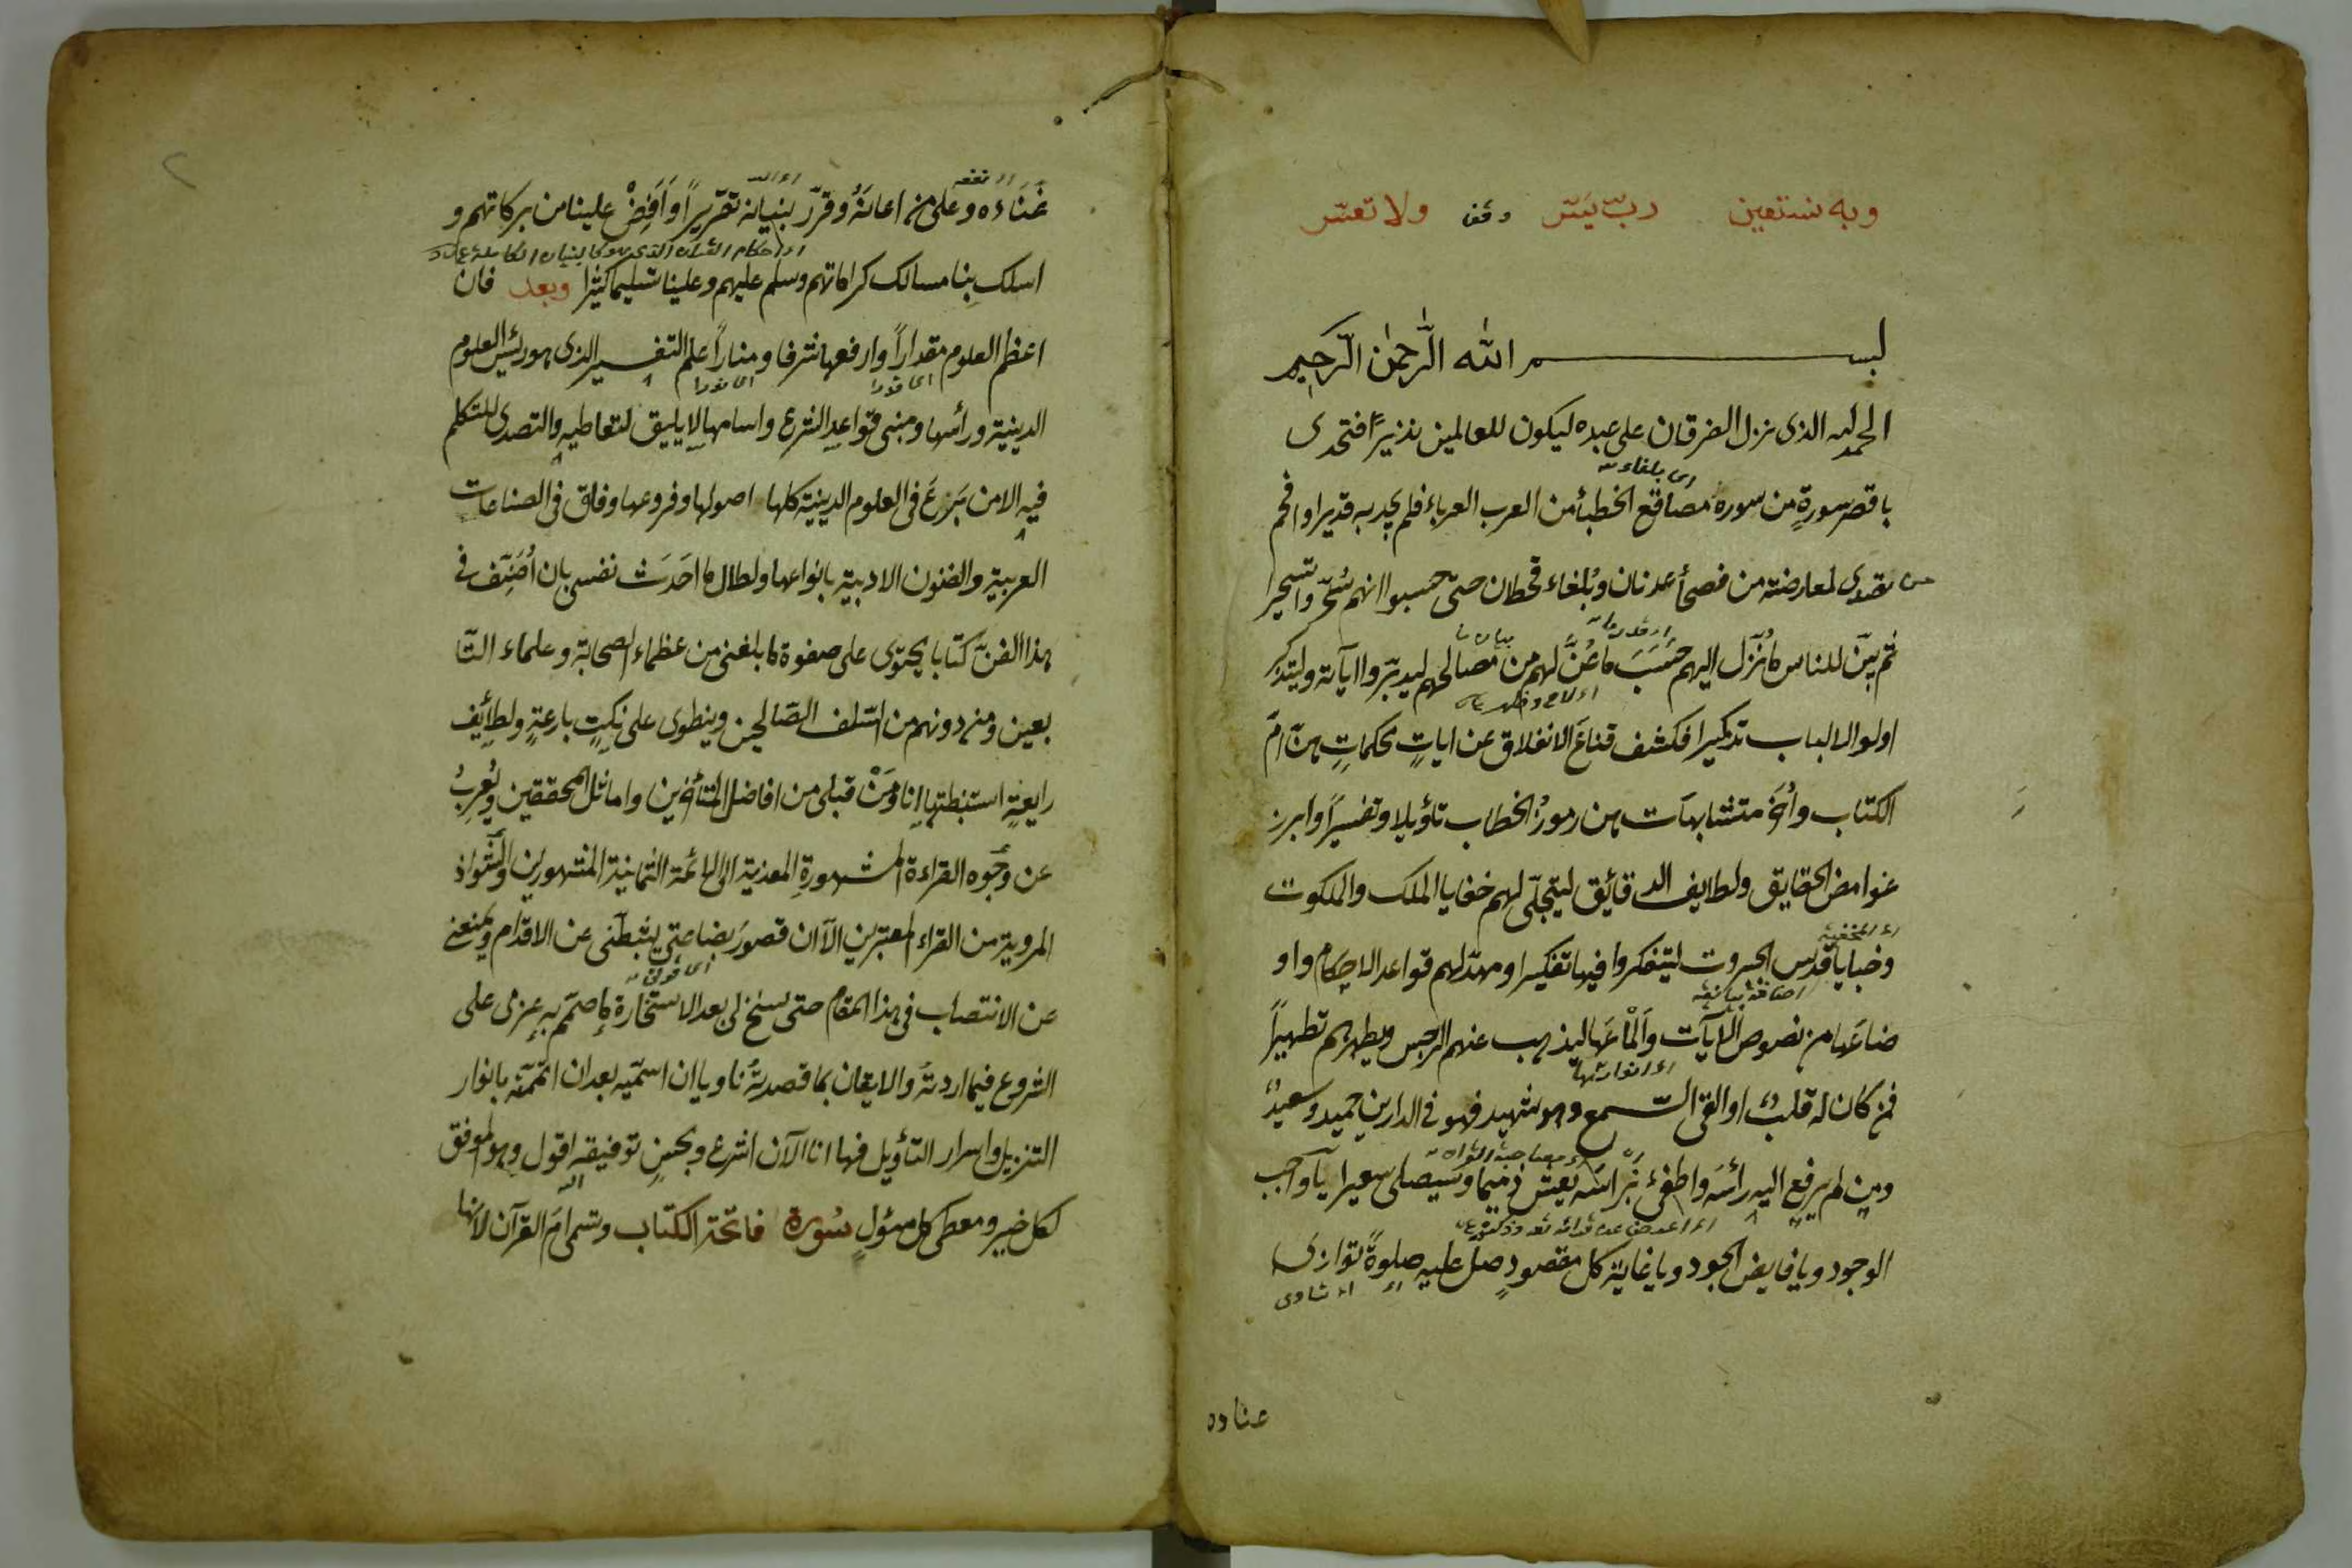 وبه نستعين رب يسّر وفق ولا تعسّر
بسم الله الرّحمن الرّحيم
الحمد لله الذى نزل الفرقان على عبده ليكون للعالمين نذيرًا فتحدى
اى بلغاء
باقصر سورةٍ من سوره مصاقع الخطبأ من العرب العرباء فلم يجد به قديرا وافحم
من تصدى لمعارضته من فصحأ عدنان وبُلغاء قحطان حتى حسبوا انهم سُحّروا تسحيرا
ثم بيّن للناس ما نُزّل اليهم حَسَبَ ما عَنَّ لهم من مصالحهم ليدبّروا آياته وليتذكر
اولوا الالباب تذكيرا فكشف قناعَ الانغلاق عن اياتٍ محكماتٍ هنّ امّ
الكتاب واُخَر متشابهات هن رموزُ الخطاب تأويلا وتفسيرًا وابرز
غوامض الحقايق ولطايف الدقائق ليتجلّى لهم خفايا الملك والملكوت
وخبايا قدس الجبروت ليتفكروا فيها تفكيرا ومهّد لهم قواعد الاحكام واو
ضاعَها من نصوص الايآت واَلْماعَها ليذهب عنهم الرجس ويطهرهم تطهيرًا
اى انوارها
فمن كان له قلبٌ او القى السّمع وهو شهيد فهو فى الدارين حميد وسعيدٌ
ومن لم يرفع اليه رأسَه واطفئ نبراسَه يعش ذميما وسيصلى سعيرا يآ واجب
الوجود ويا فايض الجود ويا غاية كل مقصودٍ صلّ عليه صلوةً توازى
عناده
غَنَاءَه وعلى من اعانَهُ وقرّر بنيانه تقريرًا وَاَفِضْ علينا من بركاتهم و
اسلك بِنا مسالك كراماتهم وسلم عليهم وعلينا تسليما كثيرا وبعد فان
اعظم العلوم مقدارًا وارفعها شرفا ومنارًا علم التفسير الذى هو رئيس العلوم
الدينية ورأسها ومبنى قواعدِ الشرع واساسها لا يليق لتعاطيه والتصدى للتكلم
فيه الا من بَرَعَ فى العلوم الدينية كلها اصولها وفروعها وفاق فى الصناعات
العربية والفنون الادبية بانواعها ولطال ما احَدّث نفسى بان اُصَنِّف فى
هذا الفنّ كتابا يحتوى على صفوة ما بلغنى من عظماء الصحابة وعلماء التا
بعين ومن دونهم من السّلف الصّالحين وينطوى على نكتٍ بارعةٍ ولطائِف
رايعةٍ استنبطتها انا ومَنْ قبلى من افاضل المتأخرين واماثل المحققين ويُعربُ
عن وجُوه القراءة المشهورةِ المعزية الى الائمة الثمانية المشهورين والشّواذ
المروية من القراء المعتبرين الا ان قصورَ بضاعتى يثبطنى عن الاقدام ويمنعنى
عن الانتصاب فى هذا المقام حتى سنح لى بعد الاستخارة ما صمّم به عزمى على
الشروع فيما اردتهُ والايقان بما قصدتهُ ناويا ان اسمّيه بعد ان اتممّه بانوار
التنزيل واسرار التأويل فها انا الآن اشرع وبحسن توفيقه اقول وهو الموفق
لكل خير ومعطى كل مسؤلٍ سُورة فاتحة الكتاب وتسمى امّ القرآن لانها